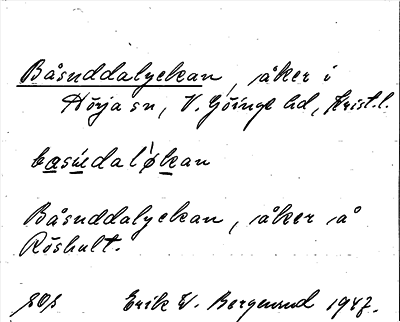 Båsnddalyckan, åker i
Hörja sn, V. Göinge hd, Krist. l.
basnd̀alỳkan
Båsnddalyckan, åker å
Röshult.
Erik W. Bergmund 1947.